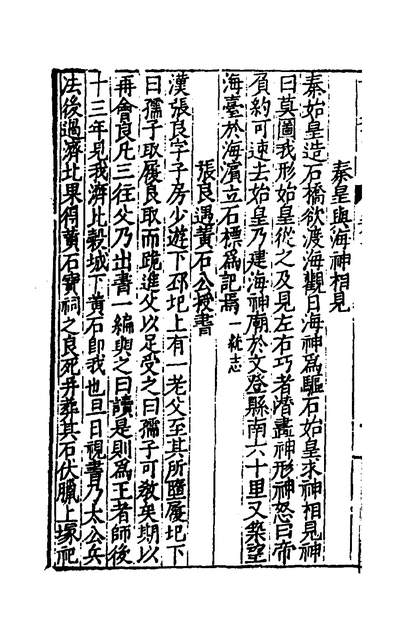 秦皇與海神相見
秦始皇造石橋欲渡海觀日海神爲驅石始皇求神相見神
曰莫圖我形始皇從之及見左右巧者潛畫神形神怒曰帝
負約可速去始皇乃建海神廟於文登縣南六十里又築望
海臺於海濱立石標爲記焉一統志
張良遇黃石公授書
漢張良字子房少遊下邳圯上有一老父至其所墮履圯下
曰孺子取履良取而跪進父以足受之曰孺子可敎矣期以
再會良凡三往父乃出書一編與之曰讀是則爲王者師後
十三年見我濟北穀城下黃石卽我也旦日視書乃太公兵
法後過濟北果得黃石寶祠之良死并葬其石伏臘上塚祀